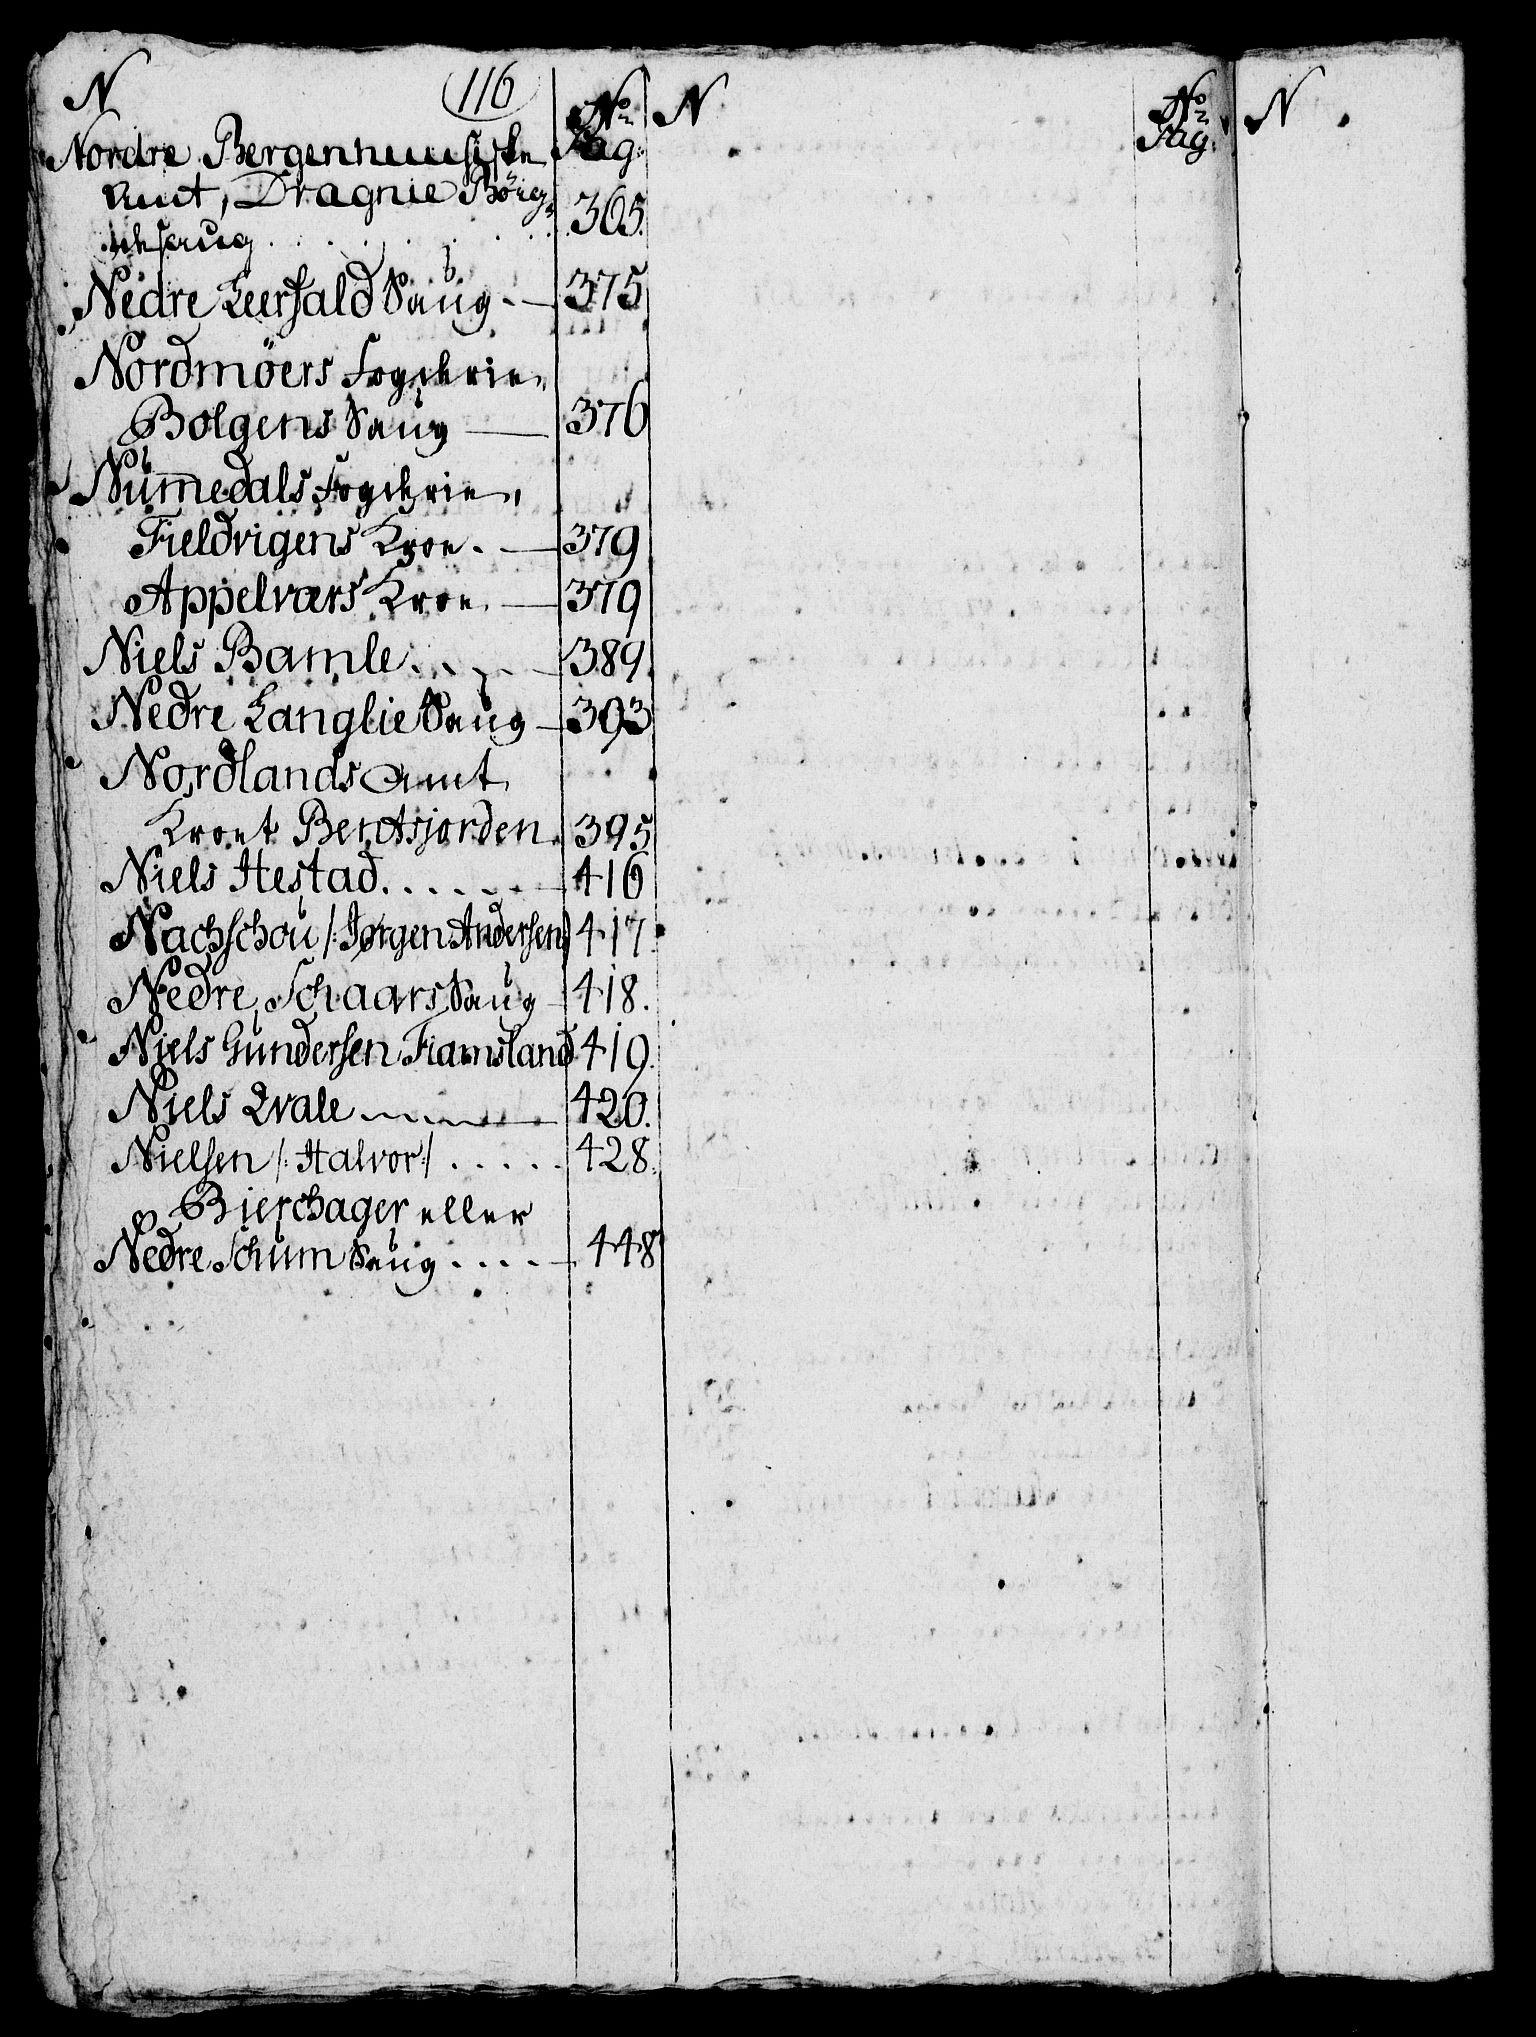 N (116) No Pag: N No Pag: N
Nordre Bergenhuusiske
Amt, Dragnie Böig=
desaug . . . . . . . . 365.
Nedre Leerfald Saug. — 375
Nordmöers Fogderie,
Bolgens Saug — 376
Numedals Fogderie,
Fieldvigens Kroe. — 379
Appelværs Kroe. — 379
Niels Bamle . . . — 389.
Nedre Langlie Saug — 393
Nordlands Amt
Kroet Bentsjorden. 395
Niels Hestad. . . . . . — 416
Nachschou /: Jørgen Andersen) 417.
Nedre Schaars Saug — 418.
Niels Gundersen Fiamsland 419.
Niels Qvale — 420.
Nielsen /: Halvor:/ . . . . . 428.
Bierchager eller
Nedre Schum Saug . . . . — 448